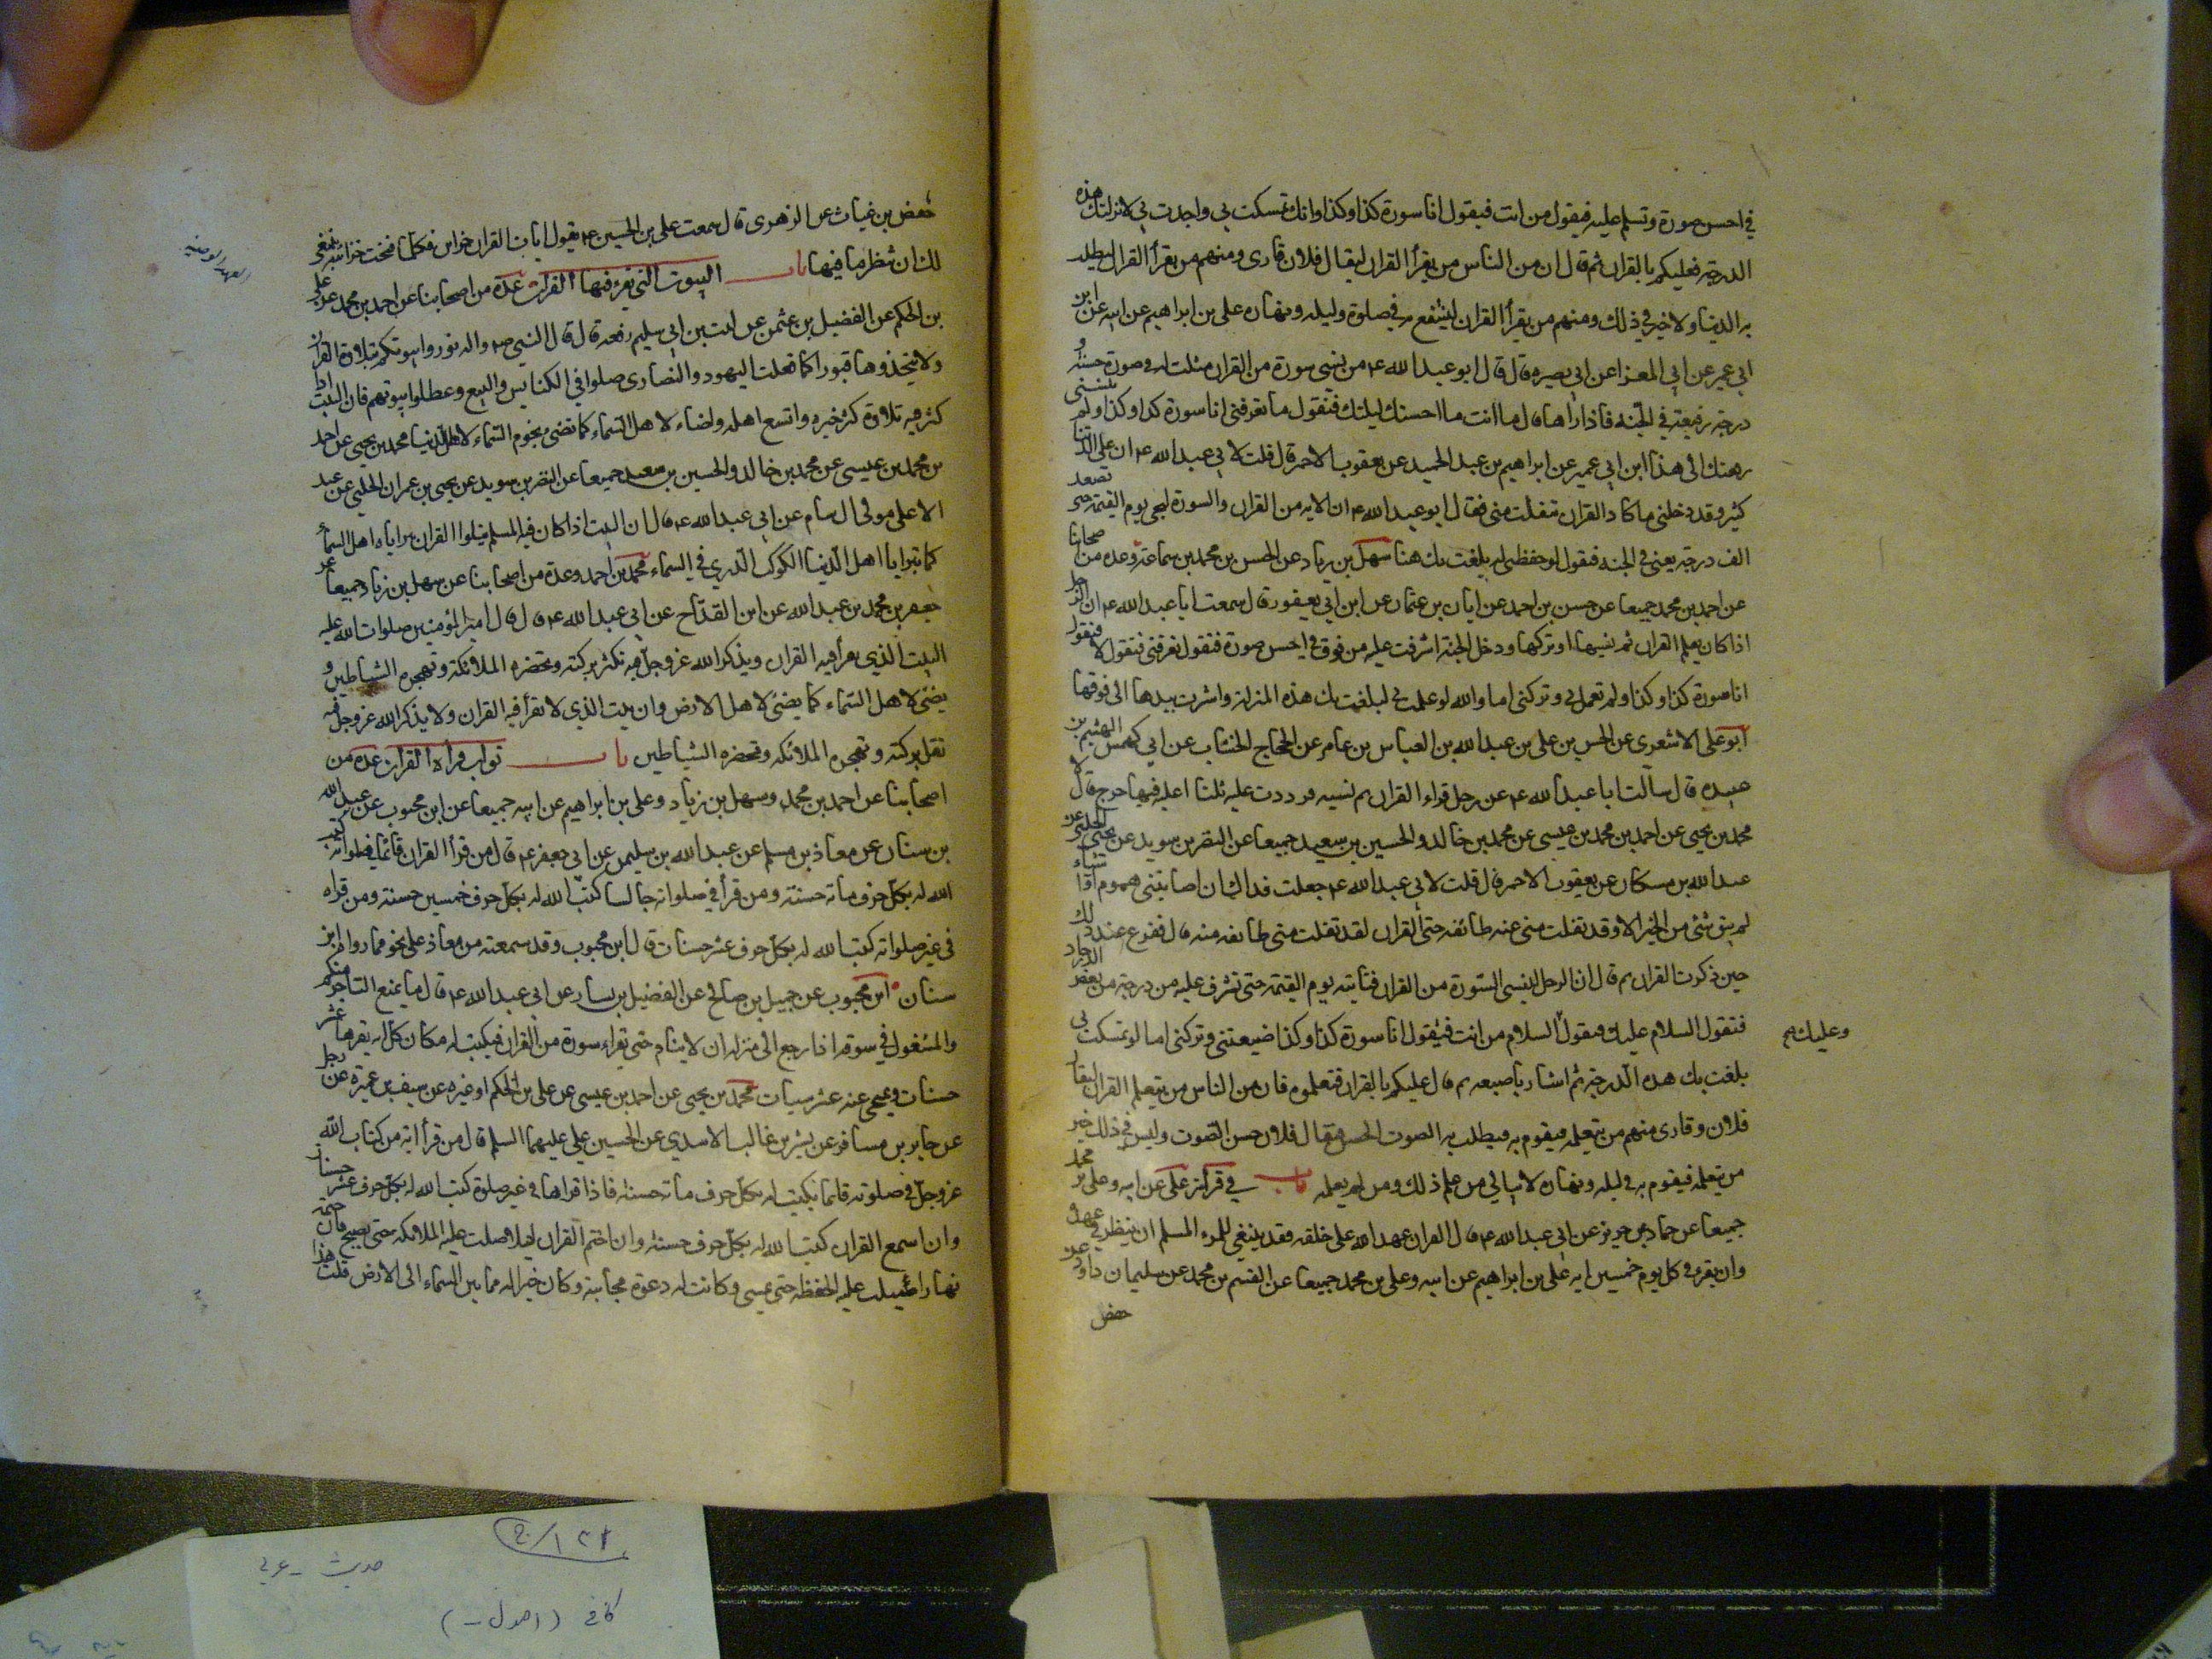 في احسن صورة وتسلم عليه فيقول من انت فيقول انا سورة كذا وكذا ولو انك تمسكت بي واخذت بي لانزلتك هذه
الدرجة فعليكم بالقران ثم قال ان من الناس من يقرأ القران ليقال فلان قارى ومنهم من يقرأ القران ليطلب
به الدنيا ولا خير في ذلك ومنهم من يقرأ القران لينتفع به في صلوة وليله ونهاره علي بن ابراهيم عن ابيه عن ابن
ابي عمير عن ابي المعزا عن ابي بصير قال قال ابو عبد الله ع من نسي سورة من القران مثلت له في صورة حسنة و
درجة رفيعة في الجنة فاذا راها قال ما انت ما احسنك ليتك لي فتقول ما تعرفني انا سورة كذا وكذا ولو لم تنسني
رفعتك الى هذا ابن ابي عمير عن ابراهيم بن عبد الحميد عن يعقوب الاحمر قال قلت لابي عبد الله ع ان علي دينا
كثيرا وقد دخلني ما كاد القران يتفلت مني فقال ابو عبد الله ع ان الاية من القران والسورة لتجي يوم القيمة حتى تصعد
الف درجة يعني في الجنة فتقول لو حفظتني لبلغت بك هنا سهل بن زياد عن الحسن بن محمد بن سماعة وعدة من اصحابنا
عن احمد بن محمد جميعا عن حسن بن احمد عن ابان بن عثمان عن ابن ابي يعفور قال سمعت ابا عبد الله ع ان الرجل
اذا كان يعلم القران ثم نسيها او تركها ودخل الجنة اشرفت عليه من فوق في احسن صورة فتقول تعرفني فيقول لا فتقول
انا سورة كذا وكذا ولم تعمل بي وتركتني اما والله لو عملت بي لبلغت بك هذه المنزلة واشرت بيدها الى فوقها
ابو علي الاشعري عن الحسن بن علي بن عبد الله بن العباس بن عامر عن الحجاج الخشاب عن ابي كهمس الهيثم بن
عبيد قال سألت ابا عبد الله ع عن رجل قراء القران ثم نسيه فرددت عليه ثلثا اعليه فيها حرج قال لا
محمد بن يحيى عن احمد بن محمد بن عيسى عن محمد بن خالد والحسين بن سعيد جميعا عن النضر بن سويد عن يحيى الحلبي عن
عبد الله بن مسكان عن يعقوب الاحمر قال قلت لابي عبد الله ع جعلت فداك ان اصابتني هموم واشياء
لم يبق شئ من الخير الا وقد تفلت مني منه طائفة حتى القران لقد تفلت مني طائفة منه قال ففزع عند ذلك
حين ذكرت القران ثم قال ان الرجل لينسى السورة من القران فتاتيه يوم القيمة حتى تشرف عليه من درجة من بعض الدرجات
فتقول السلام عليك فيقول السلام من انت فتقول انا سورة كذا وكذا ضيعتني وتركتني اما لو تمسكت بي
وعليك
بلغت بك هذه الدرجة ثم اشار باصبعه ثم قال عليكم بالقران فتعلموه فان من الناس من يتعلم القران ليقال
فلان وقارى منهم من يتعلمه فيقوم به فيطلب به الصوت الحسن فيقال فلان حسن الصوت وليس في ذلك خير
من يتعلمه فيقوم به في ليله ونهاره لا يبالي من علم ذلك ومن لم يعلمه باب في قرأته علي عن ابيه وعلي بن محمد
جميعا عن حماد عن حريز عن ابي عبد الله ع قال القران عهد الله على خلقه فقد ينبغي للمرء المسلم ان ينظر في عهده
وان يقرء في كل يوم خمسين اية علي بن ابراهيم عن ابيه وعلي بن محمد جميعا عن القسم بن محمد عن سليمان بن داود عن
حفص
حفص بن غياث عن الزهري قال سمعت علي بن الحسين ع يقول ايات القران خزاين فكلما فتحت خزانة ينبغي
لك ان تنظر ما فيها باب البيوت التي يقرء فيها القران عدة من اصحابنا عن احمد بن محمد عن علي
بن الحكم عن الفضيل بن عثمن عن ليث بن ابي سليم رفعه قال قال النبي ص واله نوروا بيوتكم بتلاوة القران
ولا تتخذوها قبورا كما فعلت اليهود والنصارى صلوا في الكنايس والبيع وعطلوا بيوتهم فان البيت اذا
كثر فيه تلاوة كثر خيره واتسع اهله واضاء لاهل السماء كما تضئ نجوم السماء لاهل الدنيا محمد بن يحيى عن احمد
بن محمد بن عيسى عن محمد بن خالد والحسين بن سعيد جميعا عن النضر بن سويد عن يحيى بن عمران الحلبي عن عبد
الاعلى مولى ال سام عن ابي عبد الله ع قال ان البيت اذا كان فيه المسلم يتلوا القران يراياه اهل السماء
كما يترايا اهل الدنيا الكوكب الدري في السماء محمد بن احمد وعدة من اصحابنا عن سهل بن زياد جميعا عن
جعفر بن محمد بن عبيد الله عن ابن القداح عن ابي عبد الله ع قال قال امير المؤمنين صلوات الله عليه
البيت الذي يقرأ فيه القران ويذكر الله عز وجل فيه تكثر بركته وتحضره الملائكة وتهجره الشياطين و
يضئ لاهل السماء كما يضئ لاهل الارض وان بيت الذي لا يقرأ فيه القران ولا يذكر الله عز وجل فيه
تقل بركته وتهجره الملائكة وتحضره الشياطين باب ثواب قراة القران عدة من
اصحابنا عن احمد بن محمد وسهل بن زياد وعلي بن ابراهيم عن ابيه جميعا عن ابن محبوب عن عبد الله
بن سنان عن معاذ بن مسلم عن عبد الله بن سليمن عن ابي جعفر ع قال من قرأ القران قائما في صلواته كتب
الله له بكل حرف مائة حسنة ومن قرأ في صلواته جالسا كتب الله له بكل حرف خمسين حسنة ومن قراه
في غير صلواته كتب الله له بكل حرف عشر حسنات قال ابن محبوب وقد سمعته من معاذ على نحو مما رواه ابن
سنان ابن محبوب عن جميل بن صالح عن الفضيل بن يسار عن ابي عبد الله ع قال ما يمنع التاجر منكم
والمشغول في سوقه اذا رجع الى منزله ان لا ينام حتى يقراء سورة من القران فيكتب له مكان كل اية يقرها عشر
حسنات ويمحى عنه عشر سيات محمد بن يحيى عن احمد بن عيسى عن علي بن الحكم او غيره عن سيف بن عميرة عن رجل
عن جابر بن مسافر عن بشر بن غالب الاسدي عن الحسين علي عليهما السلم قال من قرأ اية من كتاب الله
عز وجل في صلوته قائما يكتب له بكل حرف مائة حسنة فاذا قراها في غير صلوة كتب الله له بكل حرف عشر حسنات
وان اسمع القران كتب الله له بكل حرف حسنة وان اختم القران ليلا صلت عليه الملائكة حتى يصبح وان ختمه
نهارا صلت عليه الحفظة حتى يمسي وكانت له دعوة مجابة وكان خيرا له مما بين السماء الى الارض قلت هذا
١٢١/ج
حديث - عربي
كافى (اصول -)